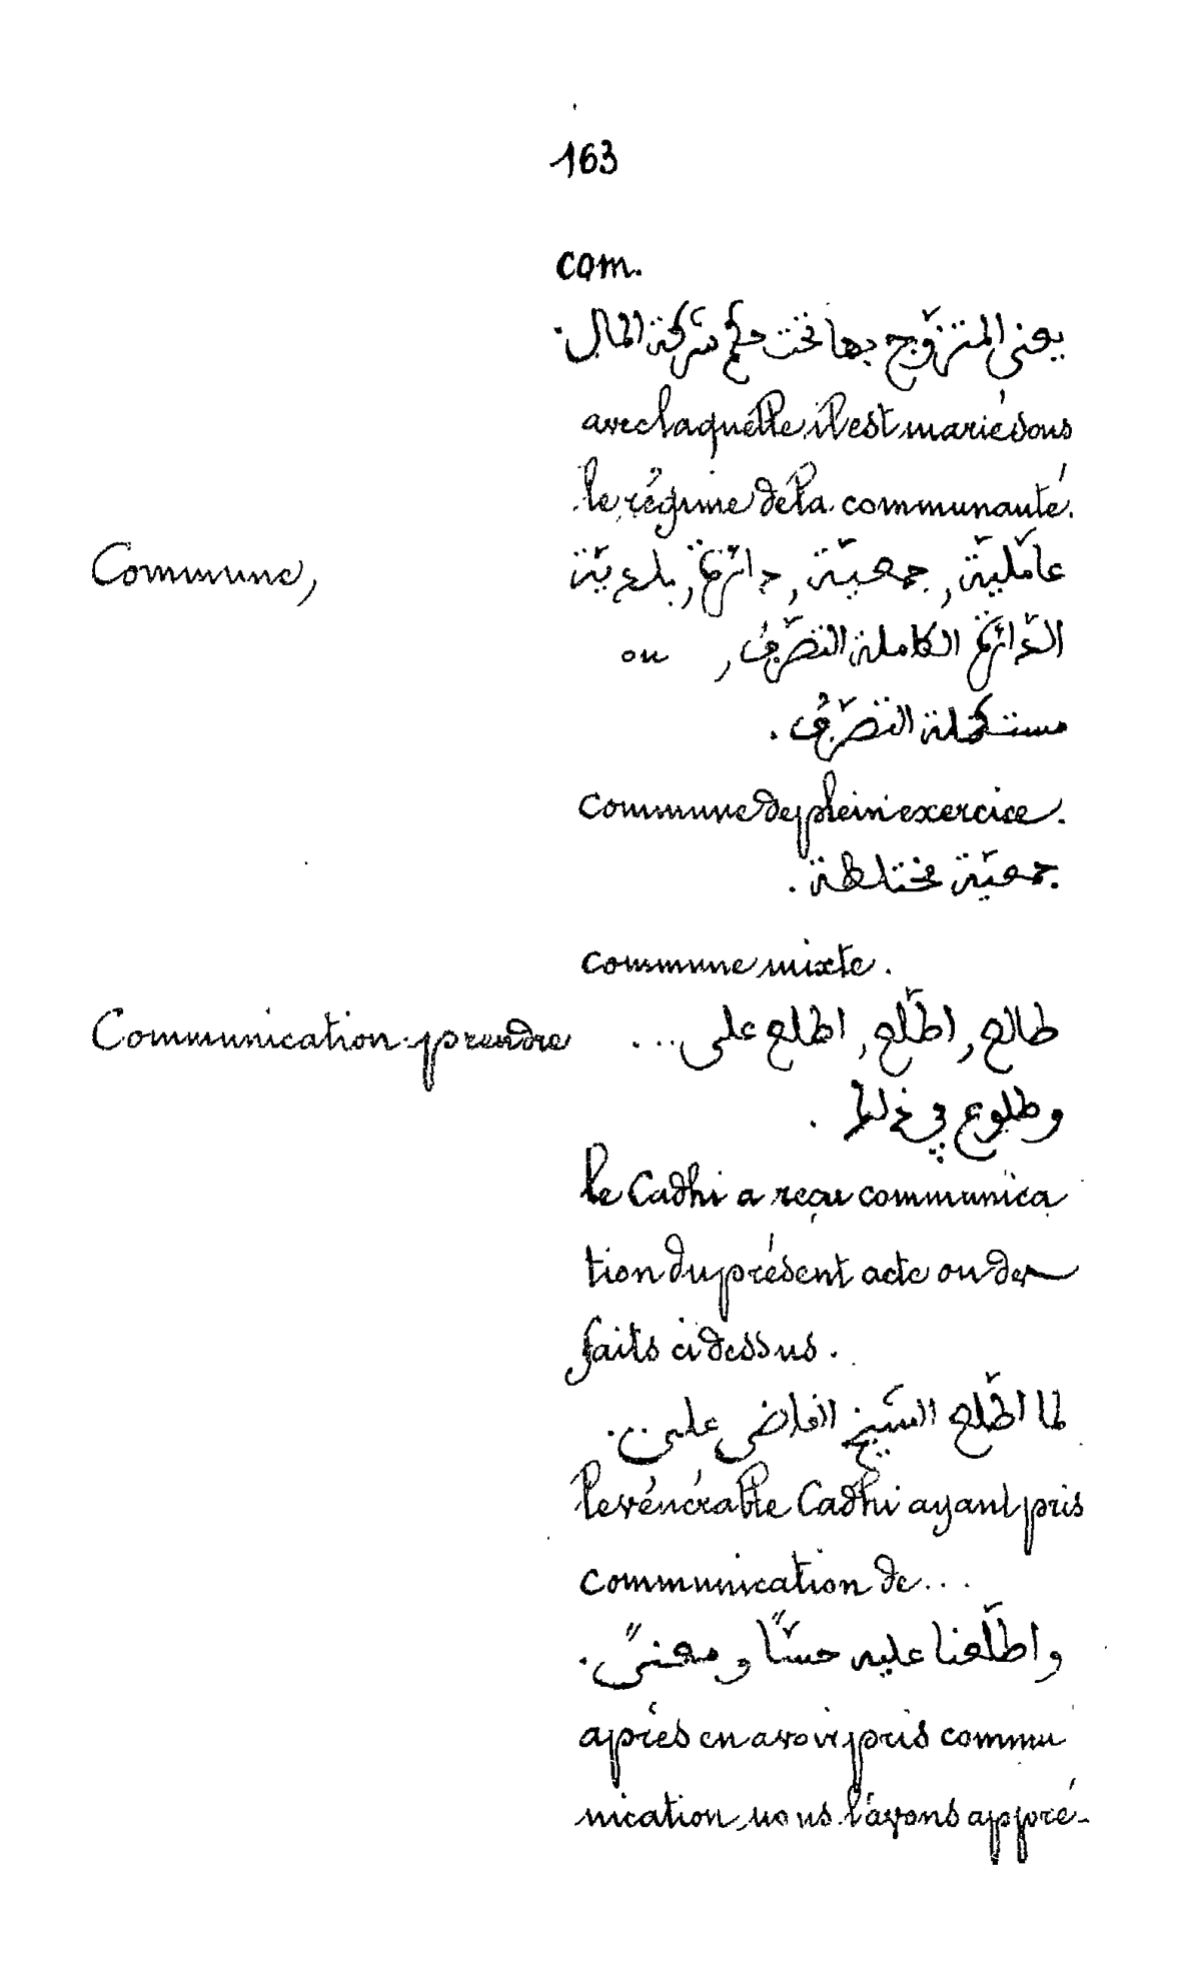 163
com.
يعنى المتزوّج بها تحت حكم شركة المال.
avec laquelle il est marié sous
le régime de la communauté.
Commune, عامّليّة, جمعيّة, دائرة, بلديّة
الدّائرة الكاملة التصرّف, ou
مستكملة التصرّف.
commune de plein exercice.
جمعيّة مختلطة.
commune mixte.
Communication prendre طالع, اطّلع, اطلع على ...
وطلوع في ذلك.
le Cadhi a reçu communica
tion du présent acte ou des
faits ci dessus.
لما اطّلع الشّيخ القاضى على ..
le vénérable Cadhi ayant pris
communication de ...
واطّلعنا عليه حسّا ومعنىً.
après en avoir pris commu
nication, nous l'avons appré-